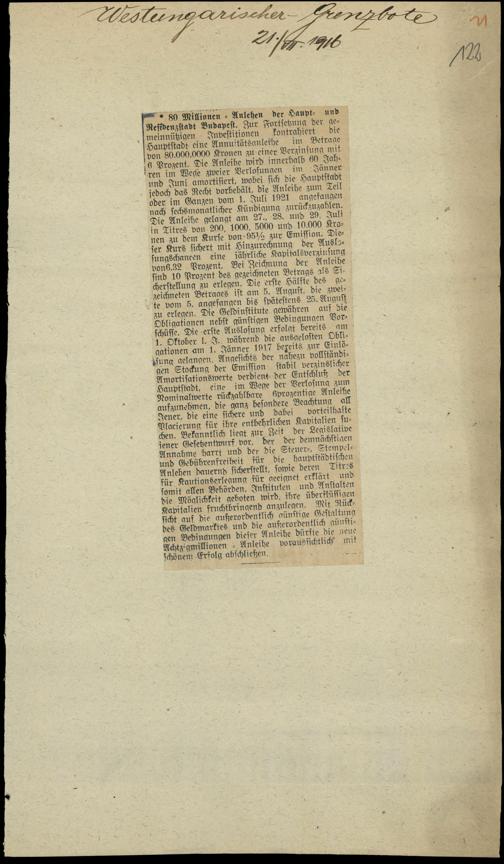 Westungarischer-Grenzbote
21
21./VII. 1916
122
* 80 Millionen-Anlehen der Haupt- und
Residenzstadt Budapest. Zur Fortsetzung der ge-
meinnützigen Investitionen kontrahiert die
Hauptstadt eine Annuitätsanleihe im Betrage
von 80.000,0000 Kronen zu einer Verzinsung mit
6 Prozent. Die Anleihe wird innerhalb 60 Jah-
ren im Wege zweier Verlosungen im Jänner
und Juni amortisiert, wobei sich die Hauptstadt
jedoch das Recht vorbehält, die Anleihe zum Teil
oder im Ganzen vom 1. Juli 1921 angefangen
nach sechsmonatlicher Kündigung zurückzuzahlen.
Die Anleihe gelangt am 27., 28. und 29. Juli
in Titres von 200, 1000, 5000 und 10.000 Kro-
nen zu dem Kurse von 95½ zur Emission. Die-
ser Kurs sichert mit Hinzurechnung der Auslo-
sungschancen eine jährliche Kapitalsverzinsung
von 6.32 Prozent. Bei Zeichnung der Anleihe
sind 10 Prozent des gezeichneten Betrags als Si-
cherstellung zu erlegen. Die erste Hälfte des ge-
zeichneten Betrages ist am 5. August, die zwei-
te vom 5. angefangen bis spätestens 25. August
zu erlegen. Die Geldinstitute gewähren auf die
Obligationen nebst günstigen Bedingungen Vor-
schüsse. Die erste Auslosung erfolgt bereits am
1. Oktober l. J. während die ausgelosten Obli-
gationen am 1. Jänner 1917 bereits zur Einlö-
sung gelangen. Angesichts der nahezu vollständi-
gen Stockung der Emission stabil verzinslicher
Amortisationswerte verdient der Entschluß der
Hauptstadt, eine im Wege der Verlosung zum
Nominalwerte rückzahlbare 6prozentige Anleihe
aufzunehmen, die ganz besondere Beachtung all
Jener, die eine sichere und dabei vorteilhafte
Placierung für ihre entbehrlichen Kapitalien su-
chen. Bekanntlich liegt zur Zeit der Legislative
jener Gesetzentwurf vor, der der demnächstigen
Annahme harrt und der die Steuer-, Stempel-
und Gebührenfreiheit für die hauptstädtischen
Anlehen dauernd sicherstellt, sowie deren Titres
für Kautionserlegung für geeignet erklärt und
somit allen Behörden, Instituten und Anstalten
die Möglichkeit geboten wird, ihre überflüssigen
Kapitalien fruchtbringend anzulegen. Mit Rück-
sicht auf die außerordentlich günstige Gestaltung
des Geldmarktes und die außerordentlich günsti-
gen Bedingungen dieser Anleihe dürfte die neue
Achtzigmillionen-Anleihe voraussichtlich mit
schönem Erfolg abschließen.